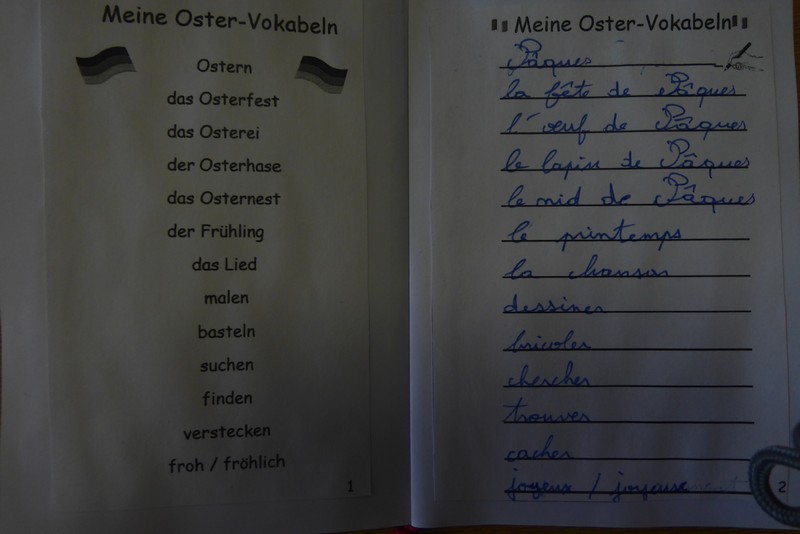 Meine Oster-Vokabeln
Ostern
das Osterfest
das Osterei
der Osterhase
das Osternest
der Frühling
das Lied
malen
basteln
suchen
finden
verstecken
froh / fröhlich
1
Meine Oster-Vokabeln
Pâques
la fête de Pâques
l'œuf de Pâques
le lapin de Pâques
le nid de Pâques
le printemps
la chanson
dessiner
bricoler
chercher
trouver
cacher
joyeux /
2